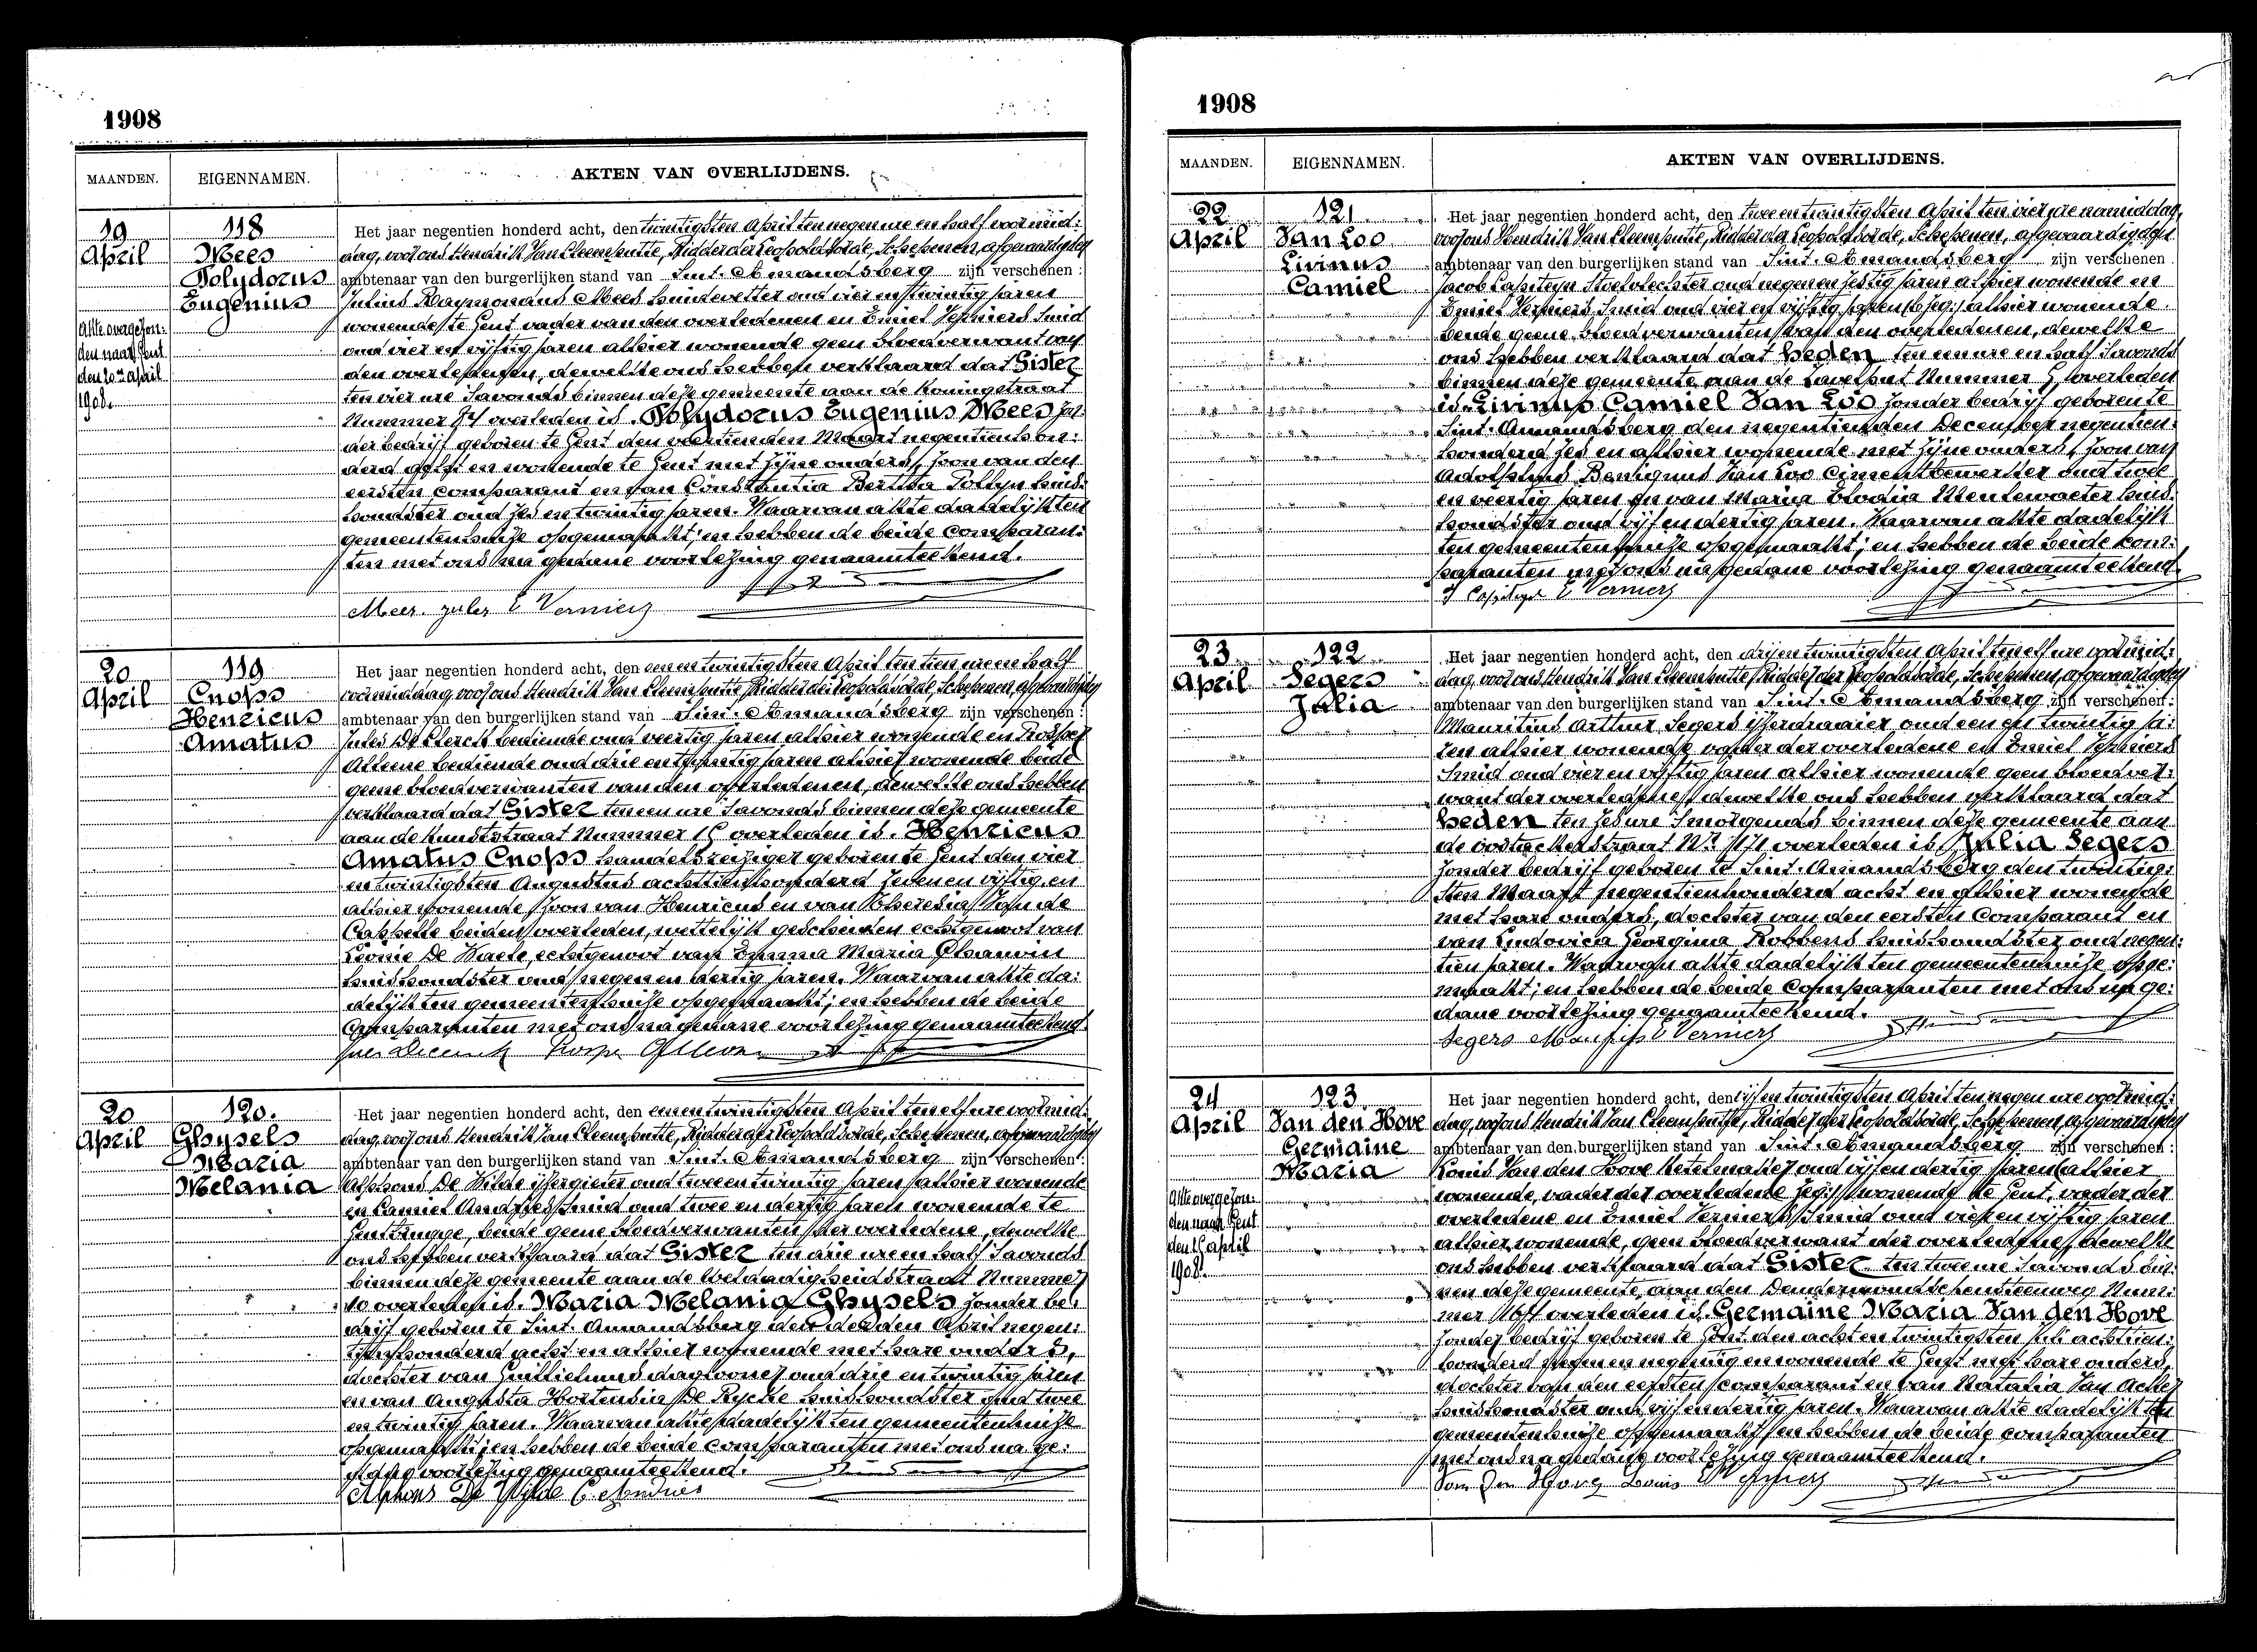 1908
MAANDEN. EIGENNAMEN. AKTEN VAN OVERLIJDENS.
19
April
118
Mees
Polydorus
Eugenius
Akte overgezon:
den naar Gent
den 20en April
1908.
Het jaar negentien honderd acht, den twintigsten April ten negen ure en half voormid:
dag, voor ons Hendrik Van Cleemputte, Ridder der Leopoldsorde, Schepenen, afgevaardigden
ambtenaar van den burgerlijken stand van Sint-Amandsberg zijn verschenen:
Julius Raymondus Mees huidevetter oud vier en twintig jaren
wonende te Gent vader van den overledenen en Emiel Verniers Smid
oud vier en vijftig jaren alhier wonende geen bloedverwant van
den overledenen, dewelke ons hebben verklaard dat Gister
ten vier ure 's avonds binnen deze gemeente aan de Koningstraat
Nummer overleden is. Polydorus Eugenius Mees zon:
der bedrijf geboren te Gent den veertienden Maart negentienhon:
derd en wonende te Gent met zijne ouders, zoon van den
eersten comparant en van Constantia Bertha Pollyn huis:
houdster oud zes en twintig jaren. Waarvan akte dadelijk ten
gemeentenhuize opgemaakt; en hebben de beide comparan:
ten met ons na gedane voorlezing genaamteekend.
Mees. jules E Verniers
20
April
119
Cnops
Henricus
Amatus
Het jaar negentien honderd acht, den eenen twintigsten April ten tien ure en half
voormiddag, voor ons Hendrik Van Cleemputte, Ridder der Leopoldsorde, Schepenen, afgevaardigden
ambtenaar van den burgerlijken stand van Sint-Amandsberg zijn verschenen:
Jules De Clerck bediende oud veertig jaren alhier wonende en Prosper
bediende oud drie en jaren alhier wonende beide
geene bloedverwanten van den overledenen, dewelke ons hebben
verklaard dat Gister ten een ure 's avonds binnen deze gemeente
aan de Kunststraat Nummer overleden is. Henricus
Amatus Cnops handelsreiziger geboren te Gent den vier
en twintigsten Augustus achttienhonderd zeven en vijftig en
alhier wonende, zoon van Henricus en van Theresia Van de
Cappelle beiden overleden, wettelijk gescheiden echtgenoot van
Leonie De Waele, echtgenoot van Emma Maria
huishoudster oud negen en dertig jaren. Waarvan akte da:
delijk ten gemeentenhuize opgemaakt; en hebben de beide
Comparanten met ons na gedane voorlezing genaamteekend.
20
April
120.
Ghysels
Maria
Melania
Het jaar negentien honderd acht, den eenen twintigsten April ten elf ure voormid:
dag, voor ons Hendrik Van Cleemputte, Ridder der Leopoldsorde, Schepenen, afgevaardigden
ambtenaar van den burgerlijken stand van Sint-Amandsberg zijn verschenen:
Alphons De Wilde ijzergieter oud twee en twintig jaren alhier wonende
en Camiel Andries Smid oud twee en dertig jaren wonende te
Gentbrugge, beide geene bloedverwanten der overledene, dewelke
ons hebben verklaard dat Gister ten drie ure en half 's avonds
binnen deze gemeente aan de Weldadigheidstraat Nummer
10 overleden is. Maria Melania Ghysels zonder be:
drijf geboren te Sint-Amandsberg den April negen:
tienhonderd acht en alhier wonende met hare ouders,
dochter van Guillielmus dagloner oud drie en twintig jaren
en van Augusta Hortensia De Rycke huishoudster oud twee
en twintig jaren. Waarvan akte dadelijk ten gemeentenhuize
opgemaakt; en hebben de beide comparanten met ons na ge:
dane voorlezing genaamteekend.
Alphons De Wilde C Andries
1908
MAANDEN. EIGENNAMEN. AKTEN VAN OVERLIJDENS.
22
April
121
Van Loo
Livinus
Camiel
Het jaar negentien honderd acht, den twee en twintigsten April ten vier ure namiddag,
voor ons Hendrik Van Cleemputte, Ridder der Leopoldsorde, Schepenen, afgevaardigden
ambtenaar van den burgerlijken stand van Sint-Amandsberg zijn verschenen
Jacob Capiteyn Stoelvlechter oud negen en zestig jaren alhier wonende en
Emiel Verniers Smid oud vier en vijftig jaren alhier wonende.
beide geene bloedverwanten van den overledenen, dewelke
ons hebben verklaard dat heden ten een ure en half 's avonds
binnen deze gemeente aan de Nummer overleden
is. Livinus Camiel Van Loo zonder bedrijf geboren te
Sint-Amandsberg den negentienden December negentien:
honderd zes en alhier wonende met zijne ouders, zoon van
Adolphus Benignus Van Loo Cimentbewerker oud twee
en veertig jaren en van Maria Elodia Meulewaeter huis:
houdster oud vijf en dertig jaren. Waarvan akte dadelijk
ten gemeentenhuize opgemaakt; en hebben de beide kom:
paranten met ons na gedane voorlezing genaamteekend.
E Verniers
23
April
122
Segers
Julia
Het jaar negentien honderd acht, den drij en twintigsten April ten elf ure voormid:
dag, voor ons Hendrik Van Cleemputte, Ridder der Leopoldsorde, Schepenen, afgevaardigden
ambtenaar van den burgerlijken stand van Sint-Amandsberg zijn verschenen:
Mauritius Arthur Segers ijzerdraaier oud een en twintig ja:
ren alhier wonende vader der overledene en Emiel Verniers
Smid oud vier en vijftig jaren alhier wonende geen bloedver:
want der overledene, dewelke ons hebben verklaard dat
heden ten zes ure 's morgends binnen deze gemeente aan
de Oostackerstraat Nr. overleden is Julia Segers
zonder bedrijf geboren te Sint-Amandsberg den twintig:
sten Maart negentienhonderd acht en alhier wonende
met hare ouders, dochter van den eersten Comparant en
van Ludovica Georgina Robbens huishoudster oud negen:
tien jaren. Waarvan akte dadelijk ten gemeentenhuize opge:
maakt; en hebben de beide Comparanten met ons na ge:
dane voorlezing genaamteekend.
Segers E Verniers
24
April
123
Van den Hove
Germaine
Maria
Akte overgezon:
den naar Gent
den April
1908.
Het jaar negentien honderd acht, den vijf en twintigsten April ten negen ure voormid:
dag, voor ons Hendrik Van Cleemputte, Ridder der Leopoldsorde, Schepenen, afgevaardigden
ambtenaar van den burgerlijken stand van Sint-Amandsberg zijn verschenen:
Louis Van den Hove Ketelmaker oud vijf en dertig jaren alhier
wonende, vader der overledene wonende te Gent, vader der
overledene en Emiel Verniers Smid oud vier en vijftig jaren
alhier wonende, geen bloedverwant der overledene, dewelke
ons hebben verklaard dat Gister ten twee ure 's avonds bin:
nen deze gemeente, aan den Dendermondschensteenweg Num:
mer overleden is. Germaine Maria Van den Hove
zonder bedrijf geboren te Gent den acht en twintigsten achttien:
honderd negen en negentig en wonende te Gent met hare ouders,
dochter van den eersten comparant en van Natalia Van Acker
huishoudster oud vijf en dertig jaren. Waarvan akte dadelijk ten
gemeentenhuize opgemaakt; en hebben de beide comparanten
met ons na gedane voorlezing genaamteekend.
Van Den Hove Louis E Verniers